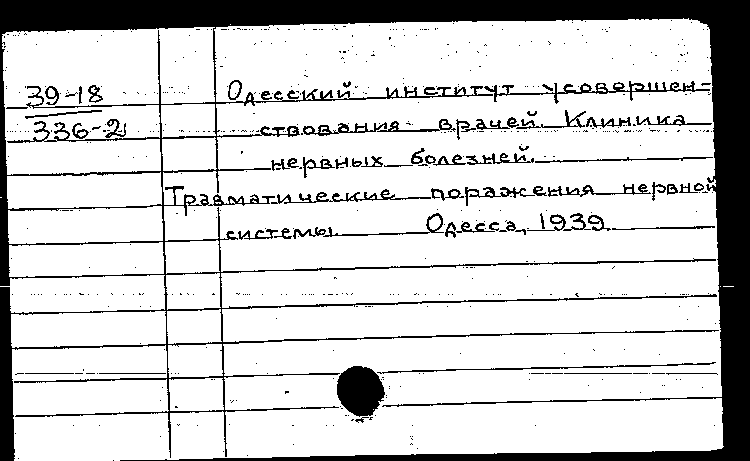 39-18
336-2
Одесский институт усовершен-
ствования врачей. Клиника
нервных болезней.
Травматические поражения нервной
системы. Одесса, 1939